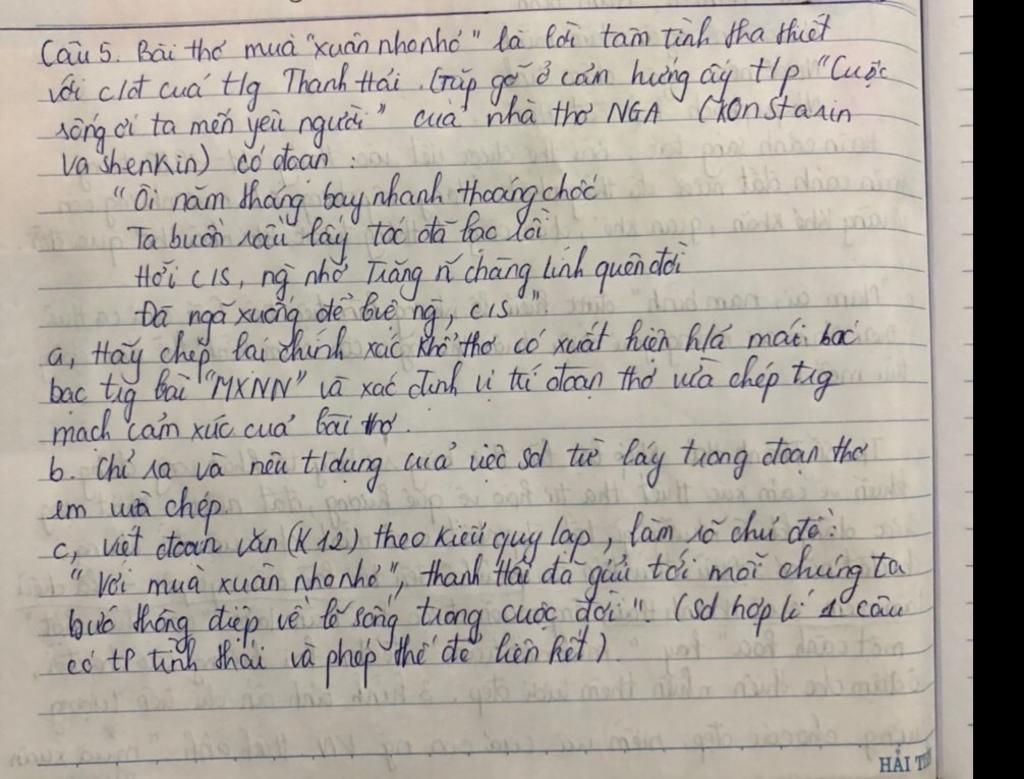 Câu 5. Bài thơ mùa "xuân nho nhỏ" là lời tâm tình tha thiết
với c/đ của t/g Thanh Hải. Gặp gỡ ở cảm hứng ấy t/p "Cuộc
sống ơi ta mến yêu người" của nhà thơ NGA (Konstasin
Va shenkin) có đoạn:
"Ôi năm tháng bay nhanh thoáng chốc
Ta buồn rầu lấy tóc đã bạc rồi
Hỏi c/s, ng nhớ chăng n~ chàng lính quên đời
Đã ngã xuống để bvệ ng, c/s"
a, Hãy chép lại chính xác khổ thơ có xuất hiện h/á mái tóc
bạc tıg bài "MXNN" và xác định vị trí đoạn thơ vừa chép tıg
mạch cảm xúc của bài thơ.
b. Chỉ ra và nêu t/dụng của việc sd từ láy trong đoạn thơ
em vừa chép.
c, viết đoạn văn (K 12) theo kiểu quy lạp, làm rõ chủ đề:
"Với mùa xuân nho nhỏ", thanh Hải đã gửi tới mỗi chúng ta
bức thông điệp về lẽ sống trong cuộc đời". (sd hợp lí 1 câu
có tP tình thái và phép thế để liên kết).
HẢI